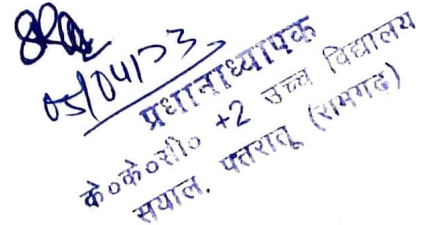 05/04/23
प्रधानाध्यापक
के०के०सी० +2 उच्च विद्यालय
सयाल, पतरातू (रामगढ़)